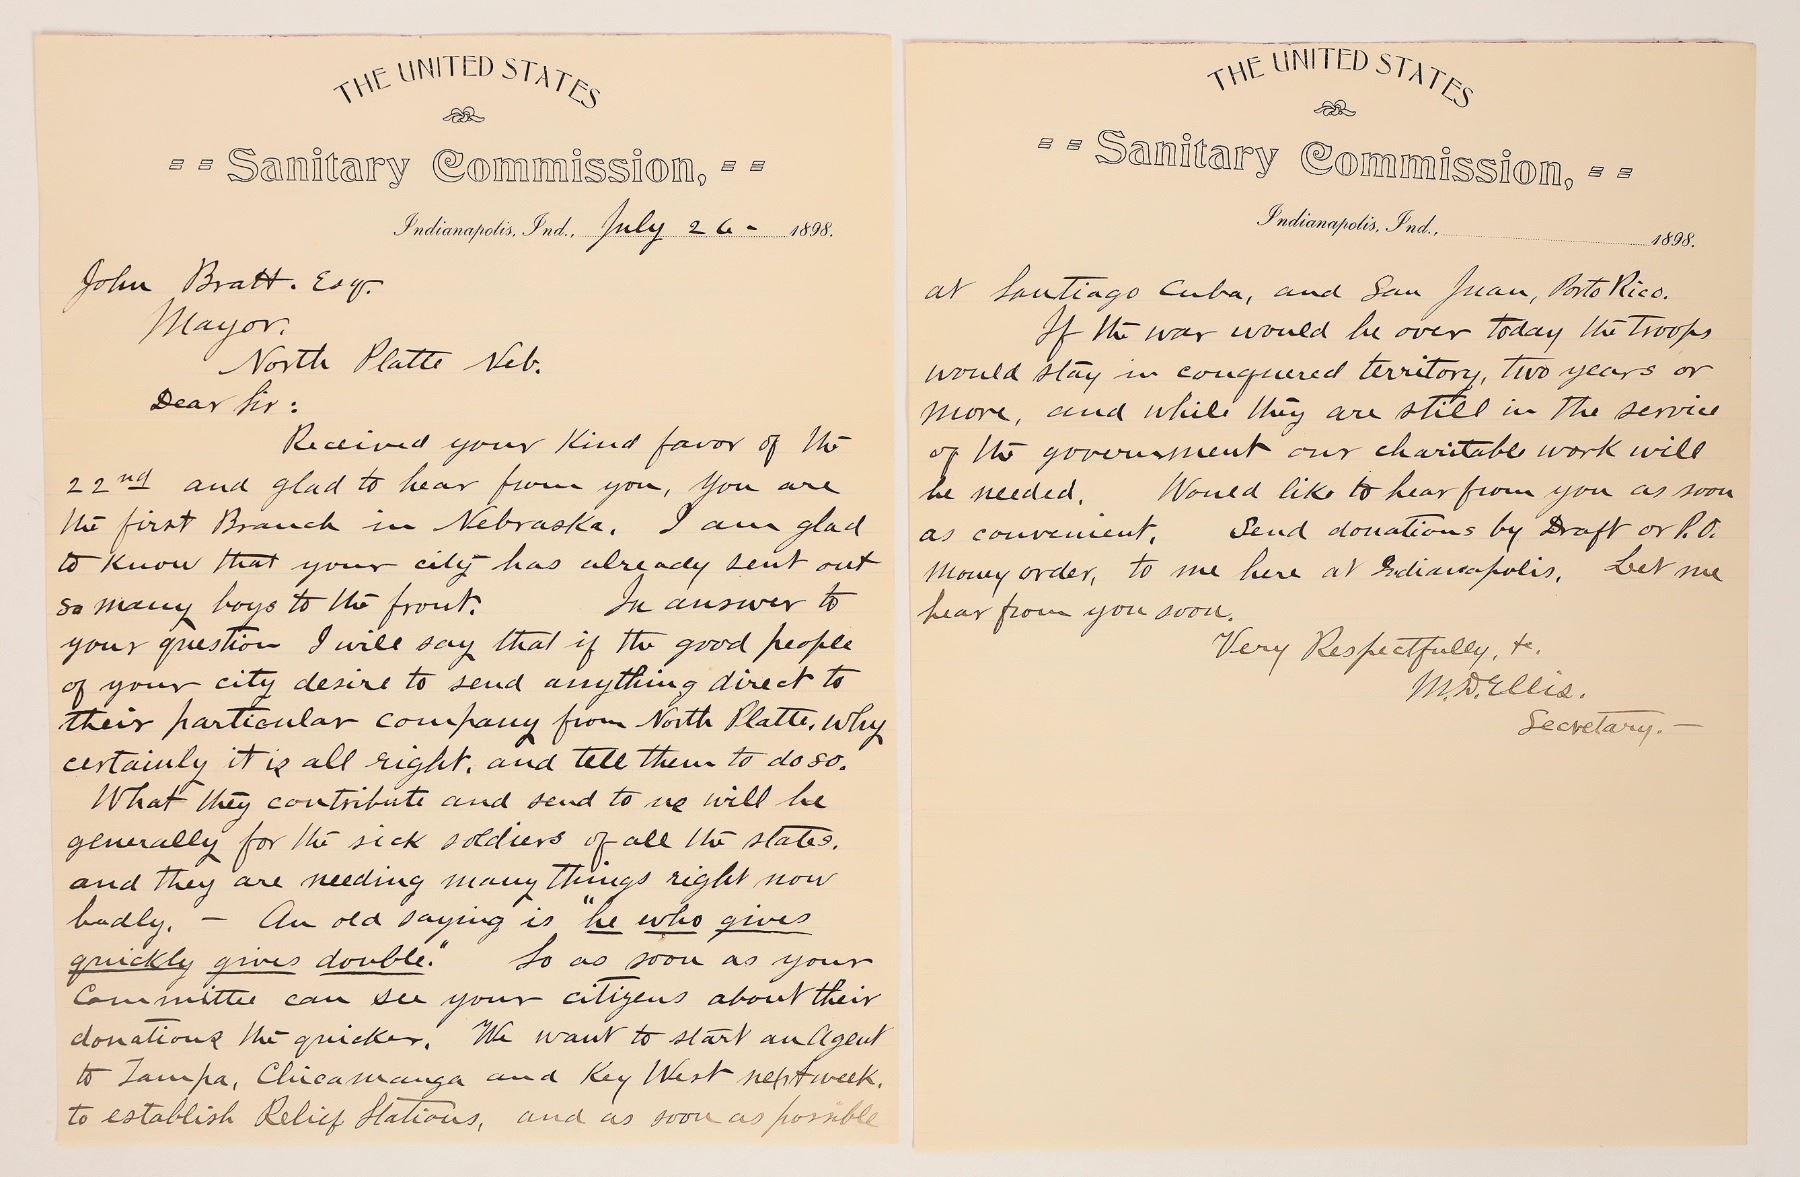 THE UNITED STATES
Sanitary Commission,
Indianapolis, Ind., July 26 - 1898.
John Bratt. Esq.
Mayor.
North Platte Neb.
Dear Sir:
Received your kind favor of the
22nd and glad to hear from you, You are
the first Branch in Nebraska. I am glad
to know that your city has already sent out
so many boys to the front. In answer to
your question I will say that if the good people
of your city desire to send anything direct to
their particular company from North Platte, why
certainly it is all right, and tell them to do so.
What they contribute and send to us will be
generally for the sick soldiers of all the states.
and they are needing many things right now
badly. - An old saying is "he who gives
quickly gives double." So as soon as your
Committee can see your citizens about their
donations the quicker. We want to start an Agent
to Tampa, Chicamauga and Key West next week.
to establish Relief Stations, and as soon as possible
THE UNITED STATES
Sanitary Commission,
Indianapolis, Ind., 1898.
at Santiago Cuba, and San Juan, Porto Rico.
If the war would be over today the troops
would stay in conquered territory, two years or
more, and while they are still in the service
of the government our charitable work will
be needed. Would like to hear from you as soon
as convenient. Send donations by Draft or P.O.
money order, to me here at Indianapolis. Let me
hear from you soon.
Very Respectfully, &c.
M.D. Ellis.
Secretary. -